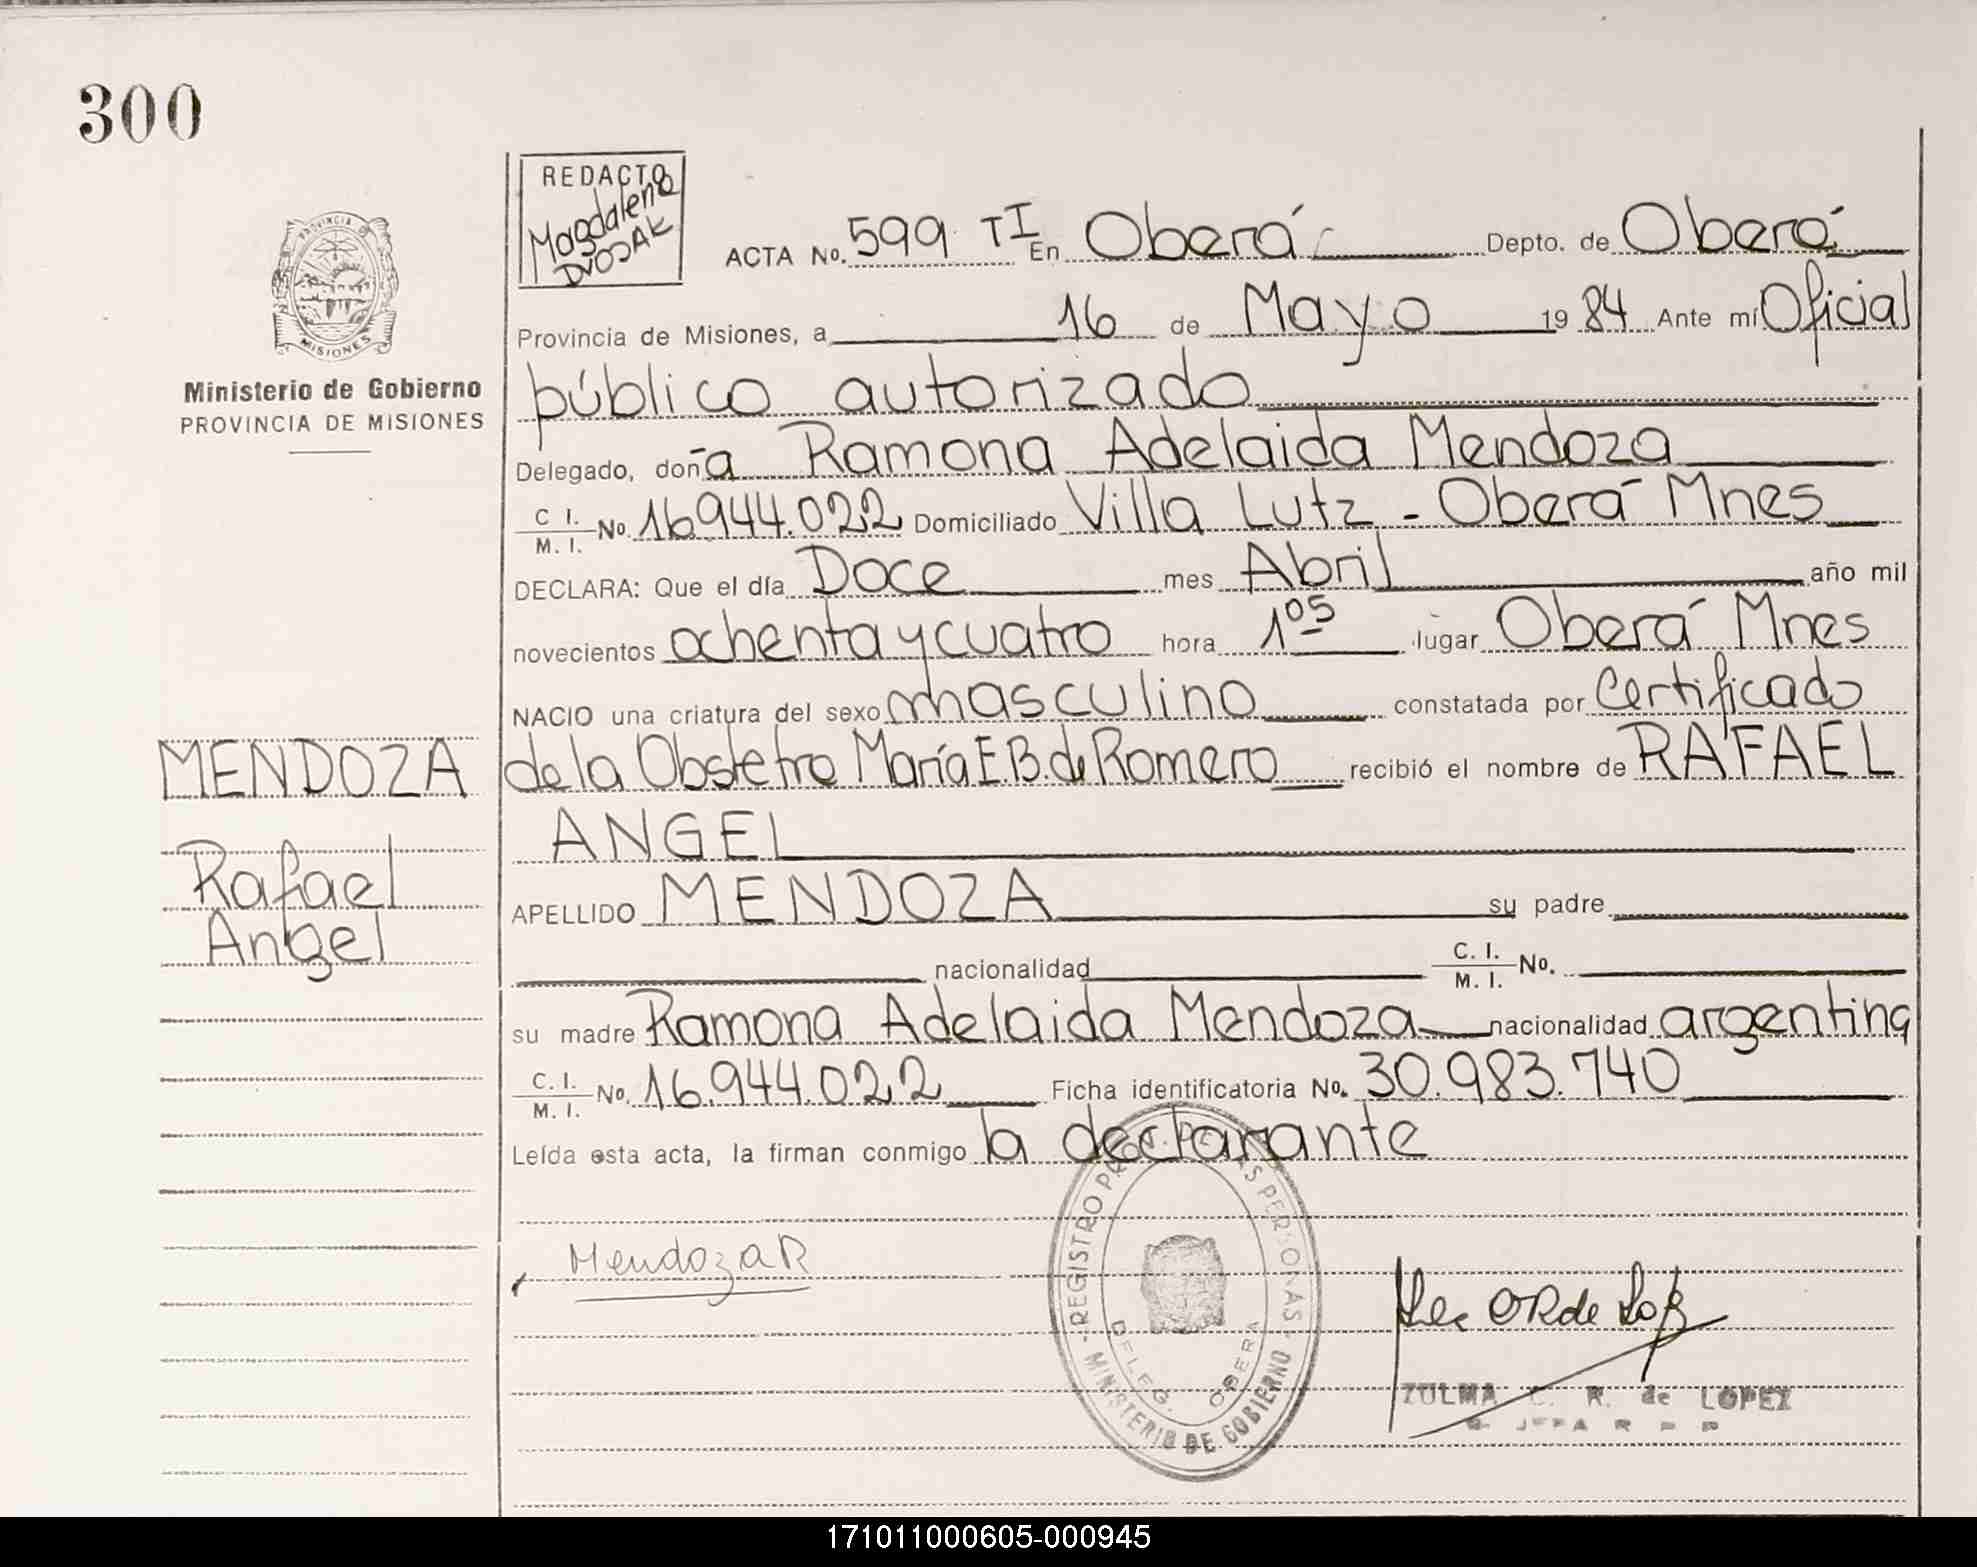 300
REDACTO
Magdalena
DVOJAK
PROVINCIA DE
MISIONES
Ministerio de Gobierno
PROVINCIA DE MISIONES
ACTA No. 599 TI En Oberá Depto. de Oberá
Provincia de Misiones, a 16 de Mayo 1984 Ante mí Oficial
público autorizado
Delegado, doña Ramona Adelaida Mendoza
C I. M. I. No. 16.944.022 Domiciliado Villa Lutz - Oberá Mnes
DECLARA: Que el día Doce mes Abril año mil
novecientos ochenta y cuatro hora 105 lugar Oberá Mnes
NACIO una criatura del sexo masculino constatada por Certificado
de la Obstetra María E. B. de Romero recibió el nombre de RAFAEL
ANGEL
MENDOZA
Rafael
Angel
APELLIDO MENDOZA su padre
nacionalidad C. I. M. I. No.
su madre Ramona Adelaida Mendoza nacionalidad argentina
C. I. M. I. No. 16.944.022 Ficha identificatoria No. 30.983.740
Leída esta acta, la firman conmigo la declarante
Mendoza R
REGISTRO DE LAS PERSONAS
DELEG. OBERA
MINISTERIO DE GOBIERNO
ZULMA C. R. de LOPEZ
171011000605-000945